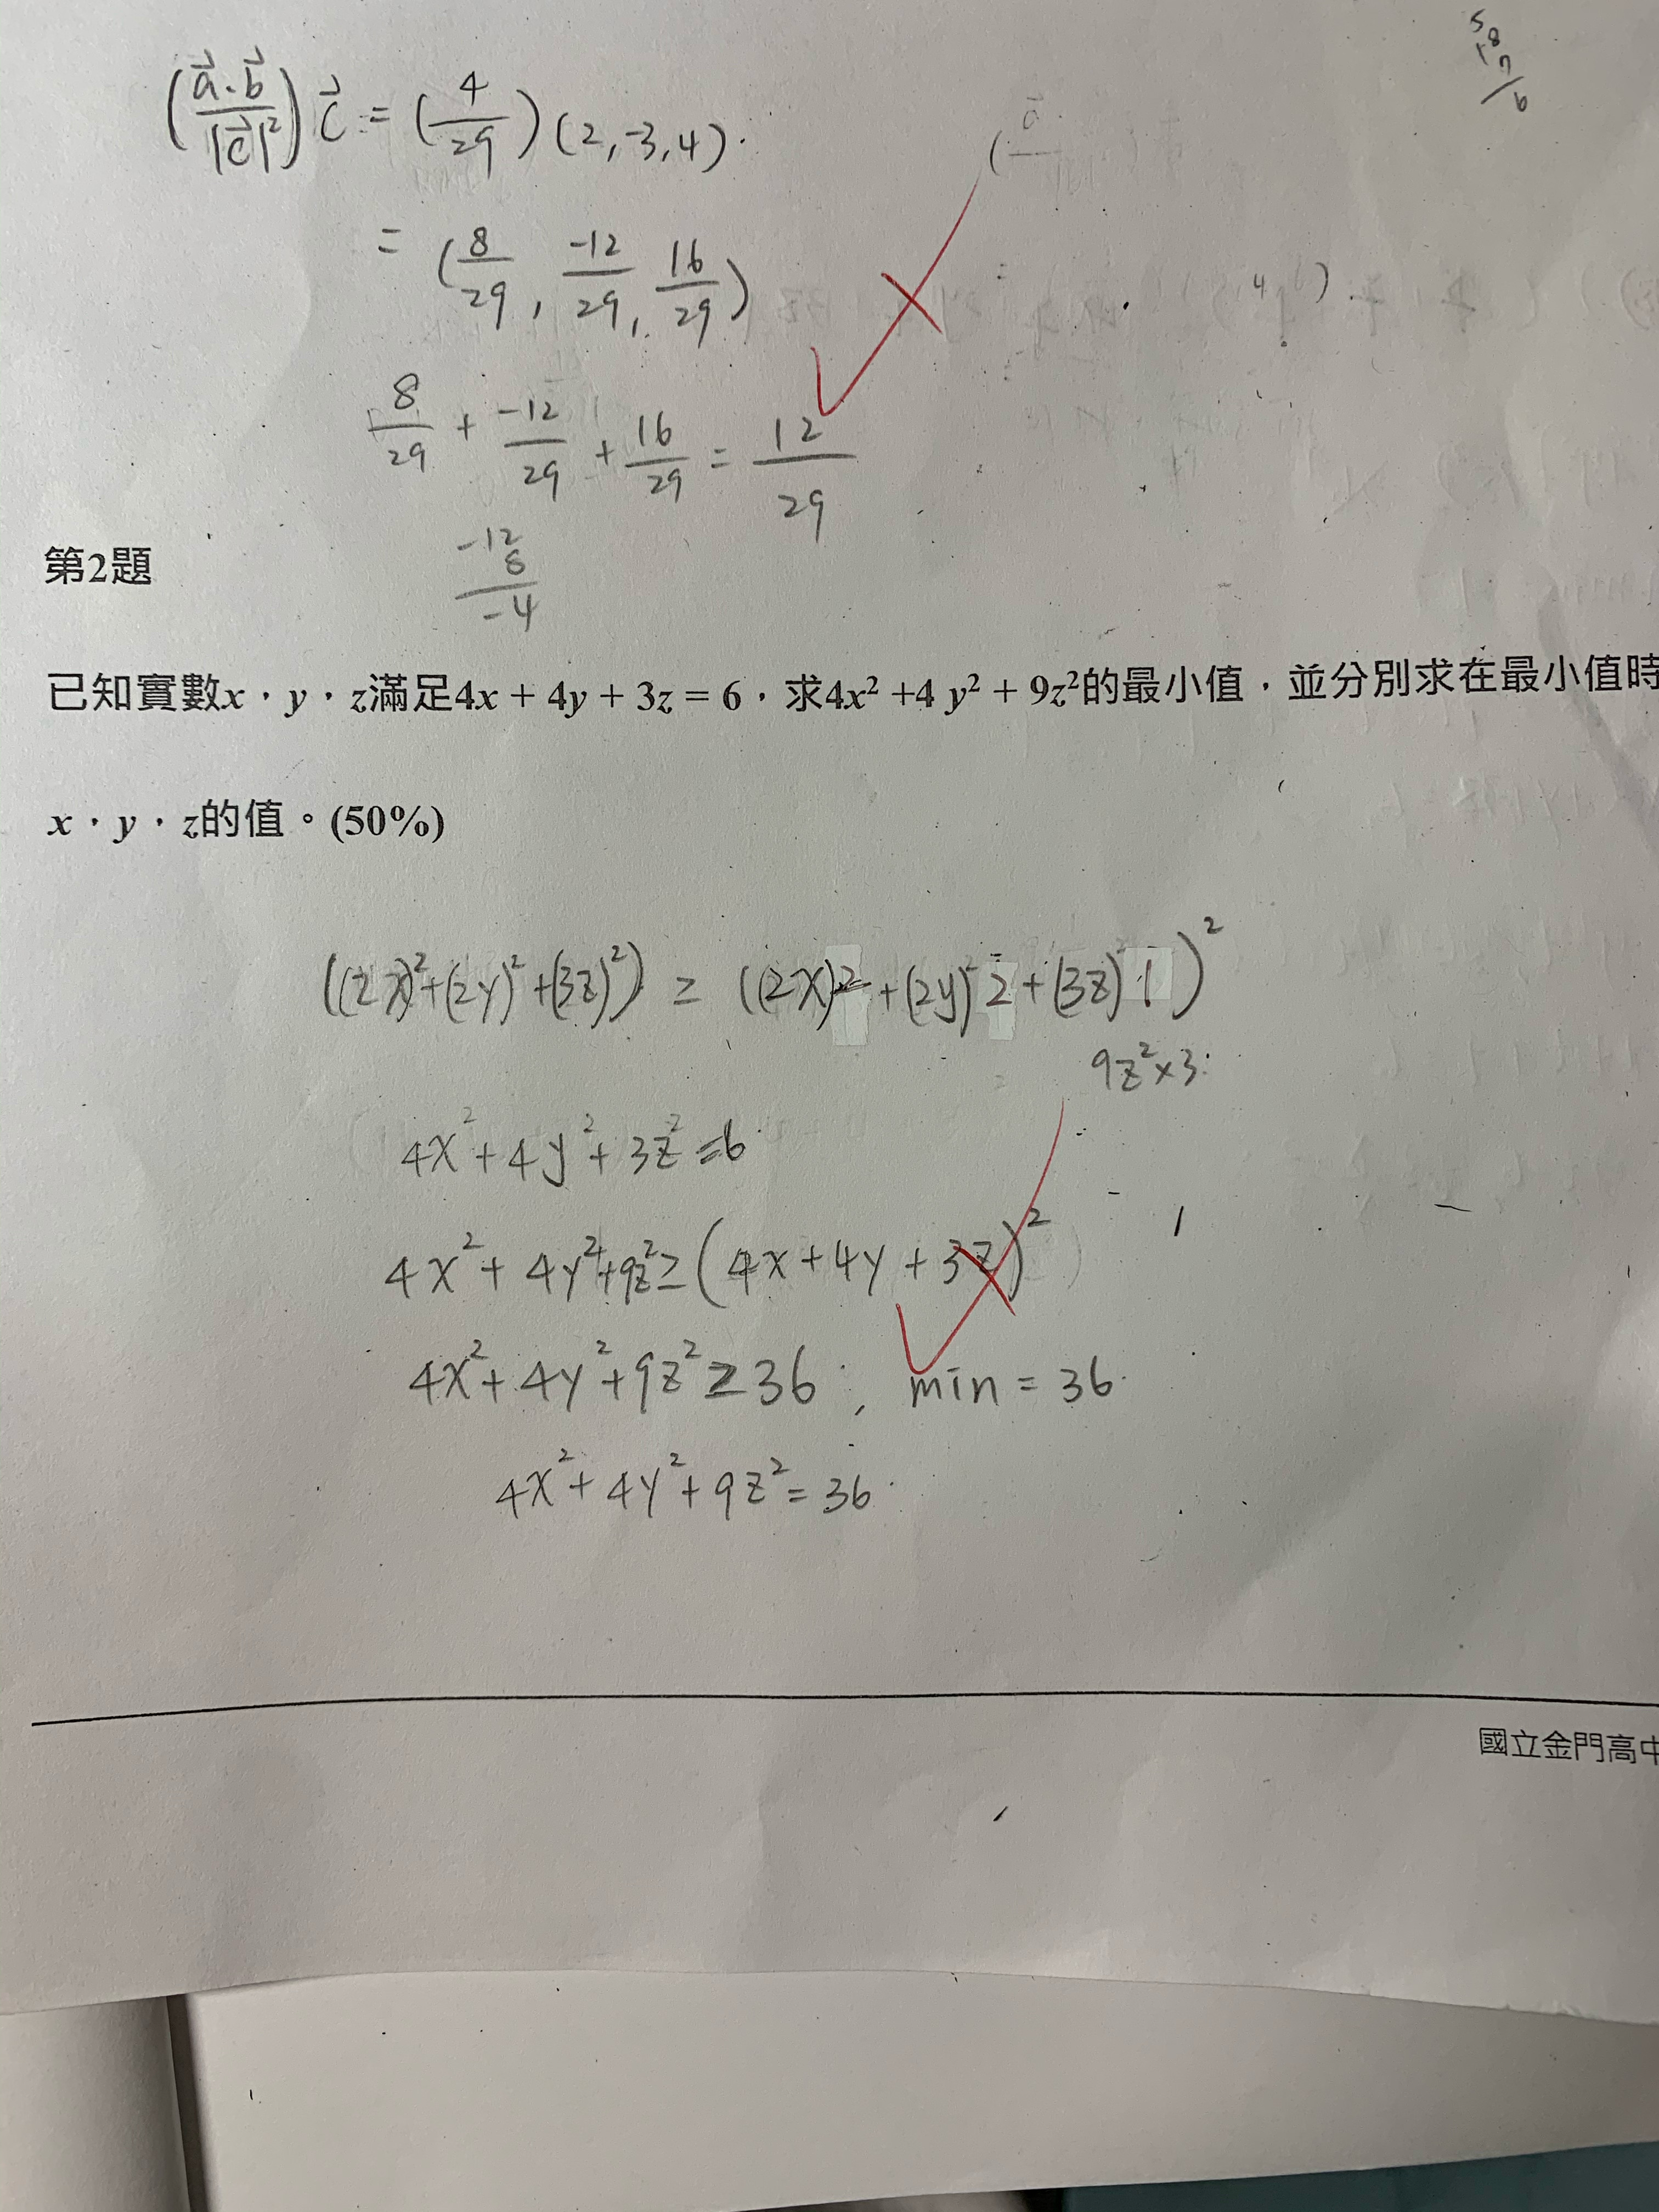 5
18
7
6
(a⃗·b⃗/|c⃗|²) c⃗ = (4/29)(2,-3,4).
= (8/29, -12/29, 16/29)
8/29 + -12/29 + 16/29 = 12/29
-12
8
-4
第2題
已知實數x，y，z滿足4x + 4y + 3z = 6，求4x² +4 y² + 9z²的最小值，並分別求在最小值時
x，y，z的值。(50%)
((2x)²+(2y)²+(3z)²) ≥ ((2x)2+(2y)2+(3z)1)²
9z²×3
4x²+4y²+3z²=6
4x²+4y²+9z²≥(4x+4y+3z)²
4x²+4y²+9z²≥36; min = 36
4x²+4y²+9z²=36
國立金門高中